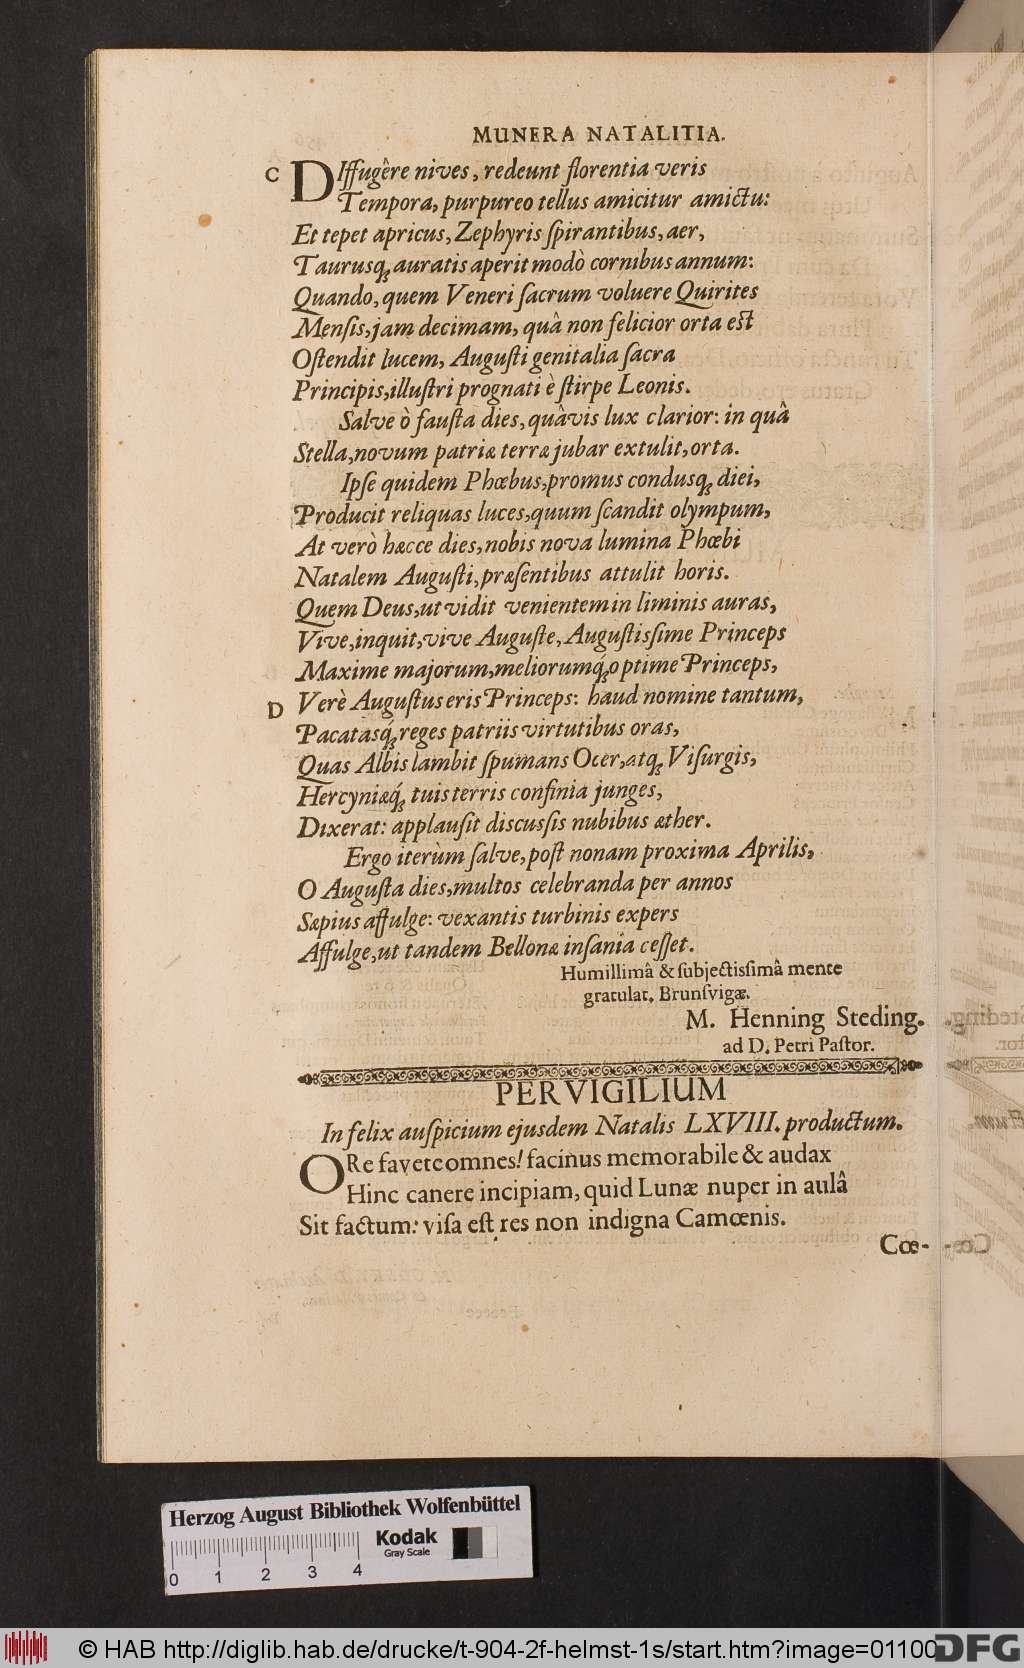 MUNERA NATALITIA.
C DIffugêre nives, redeunt florentia veris
Tempora, purpureo tellus amicitur amictu:
Et tepet apricus, Zephyris ſpirantibus, aer,
Taurusq; auratis aperit modò cornibus annum:
Quando, quem Veneri ſacrum voluere Quirites
Menſis, jam decimam, quâ non felicior orta est
Oſtendit lucem, Auguſti genitalia ſacra
Principis, illuſtri prognati è ſtirpe Leonis.
Salve ò fauſta dies, quâvis lux clarior: in quâ
Stella, novum patriæ terræ jubar extulit, orta.
Ipſe quidem Phœbus, promus condusq; diei,
Producit reliquas luces, quum ſcandit olympum,
At verò hæcce dies, nobis nova lumina Phœbi
Natalem Auguſti, præſentibus attulit horis.
Quem Deus, ut vidit venientem in liminis auras,
Vive, inquit, vive Auguſte, Auguſtisſime Princeps
Maxime majorum, meliorumq́; optime Princeps,
D Verè Auguſtus eris Princeps: haud nomine tantum,
Pacatasq́; reges patriis virtutibus oras,
Quas Albis lambit ſpumans Ocer, atq; Viſurgis,
Hercyniæq́; tuis terris confinia junges,
Dixerat: applauſit discuſsis nubibus æther.
Ergo iterùm ſalve, poſt nonam proxima Aprilis,
O Auguſta dies, multos celebranda per annos
Sæpius affulge: vexantis turbinis expers
Affulge, ut tandem Bellonæ inſania ceſſet.
Humillimâ & ſubjectisſimâ mente
gratulat. Brunſvigæ.
M. Henning Steding.
ad D. Petri Paſtor.
PERVIGILIUM
In felix auſpicium ejusdem Natalis LXVIII. productum.
ORe favete omnes! facinus memorabile & audax
Hinc canere incipiam, quid Lunæ nuper in aulâ
Sit factum: viſa eſt res non indigna Camœnis.
Cœ-
Herzog August Bibliothek Wolfenbüttel
Kodak
Gray Scale
0 1 2 3 4
© HAB http://diglib.hab.de/drucke/t-904-2f-helmst-1s/start.htm?image=01100
DFG